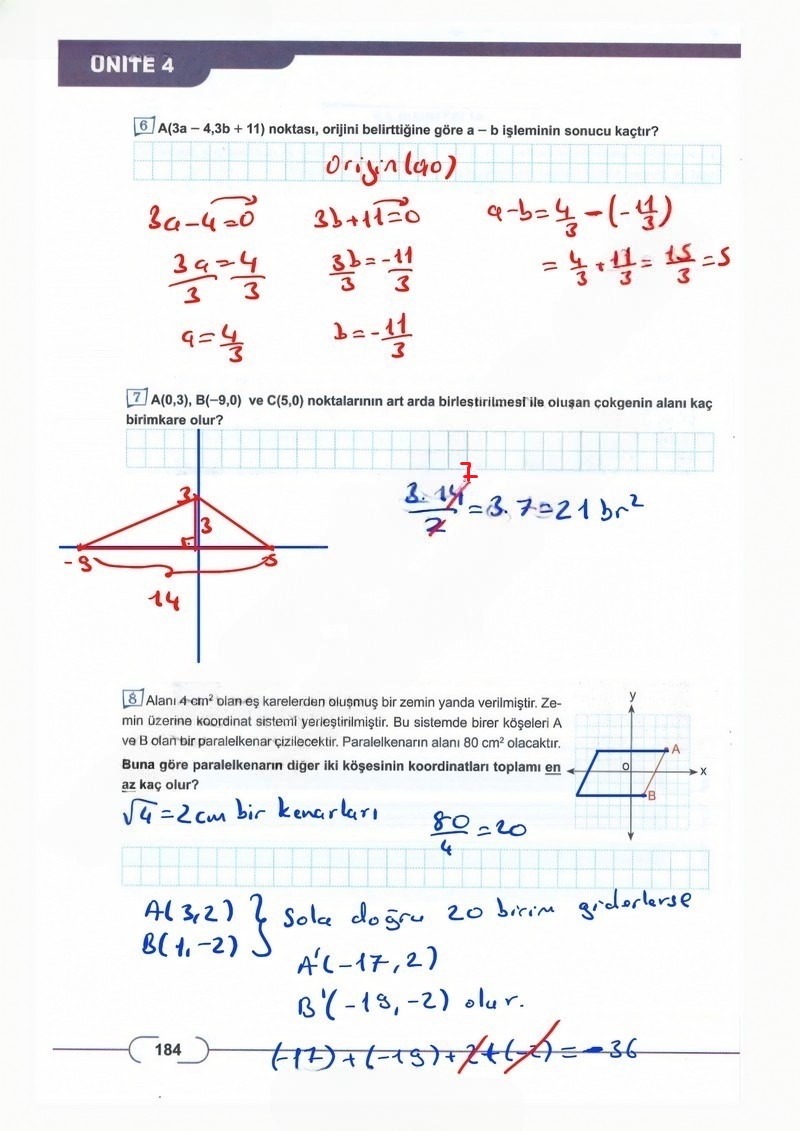 ÜNİTE 4
6 A(3a – 4,3b + 11) noktası, orijini belirttiğine göre a – b işleminin sonucu kaçtır?
Orijin (0,0)
3a-4=0 3b+11=0 a-b=4/3-(-11/3)
3a/3=4/3 3b/3=-11/3 =4/3+11/3=15/3=5
a=4/3 b=-11/3
7 A(0,3), B(–9,0) ve C(5,0) noktalarının art arda birleştirilmesi ile oluşan çokgenin alanı kaç
birimkare olur?
3
3
-9 5
14
7
3.14/2=3.7=21 br²
8 Alanı 4 cm² olan eş karelerden oluşmuş bir zemin yanda verilmiştir. Ze-
min üzerine koordinat sistemi yerleştirilmiştir. Bu sistemde birer köşeleri A
ve B olan bir paralelkenar çizilecektir. Paralelkenarın alanı 80 cm² olacaktır.
Buna göre paralelkenarın diğer iki köşesinin koordinatları toplamı en
az kaç olur?
y
A
O x
B
√4=2cm bir kenarları 80/4=20
A(3,2) } Sola doğru 20 birim giderlerse
B(1,-2)
A'(-17,2)
B'(-19,-2) olur.
(-17)+(-19)+2+(-2)=-36
184